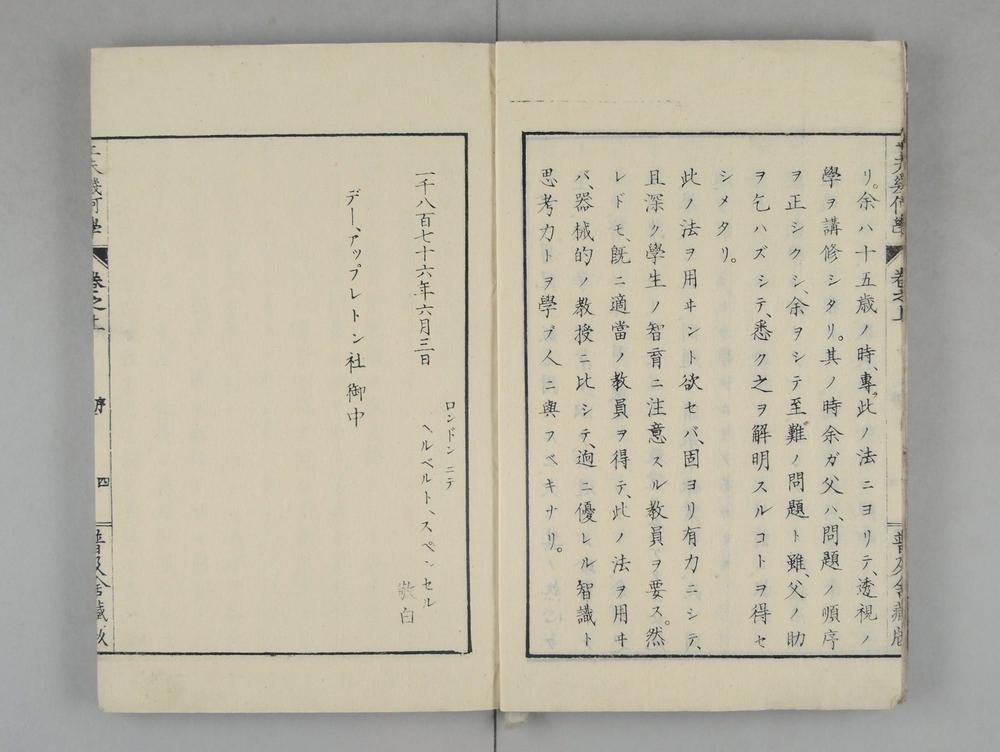 リ。余ハ十五歳ノ時、專此ノ法ニヨリテ、透視ノ
學ヲ講修シタリ。其ノ時余ガ父ハ、問題ノ順序
ヲ正シクシ、余ヲシテ至難ノ問題ト雖、父ノ助
ヲ乞ハズシテ、悉ク之ヲ解明スルコトヲ得セ
シメタリ。
此ノ法ヲ用ヰント欲セバ、固ヨリ有力ニシテ、
且深ク學生ノ智育ニ注意スル教員ヲ要ス。然
レドモ、既ニ適當ノ教員ヲ得テ、此ノ法ヲ用ヰ
バ、器械的ノ教授ニ比シテ、逈ニ優レル智識ト
思考力トヲ學ブ人ニ與フベキナリ。
ロンドンニテ
ヘルベルト、スペンセル
敬白
一千八百七十六年六月三日
デー、アップレトン社御中
幾何學
卷之上
序
四
普及舎藏版